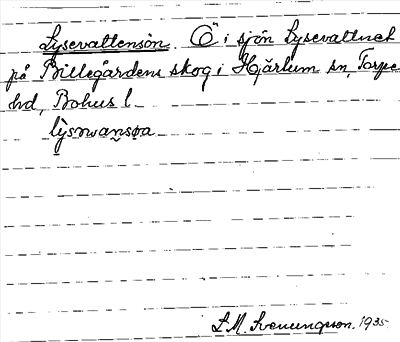 Lysevattensön. Ö i sjön Lysevattnet
på Billegårdens skog i Hjärtum sn, Torpe
hd, Bohus l.
L. M. Svenungsson. 1935